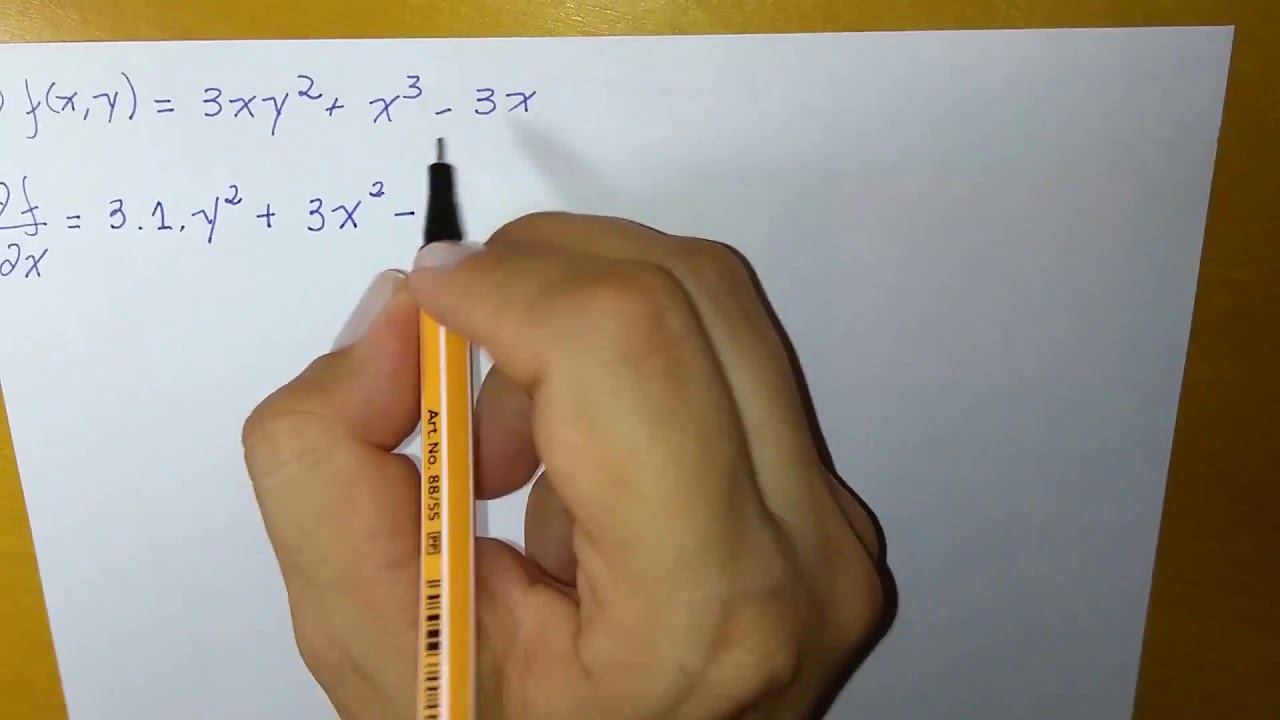 ) f(x,y) = 3xy² + x³ - 3x
∂f/∂x = 3.1.y² + 3x² -
Art. No. 88/55 PP